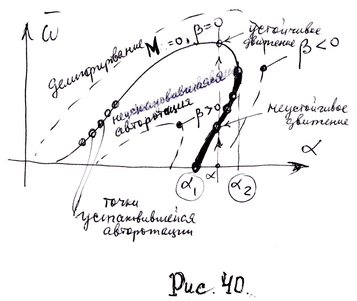 ω̄
M=0, β=0
демпфирование
устойчивое
движение
β<0
неустановившаяся
авторотация
β>0
неустойчивое
движение
α₁
α
α₂
α
точки
установившейся
авторотации
Рис. 40.